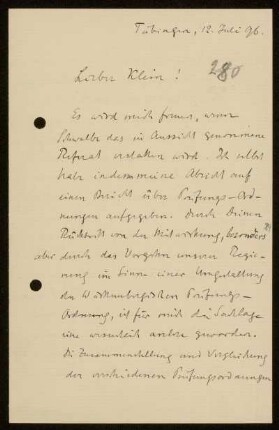 Tübingen, 12. Juli 96.
280
Lieber Klein!
Es wird mich freuen, wenn
Schwalbe das in Aussicht genommene
Referat erstatten wird. Ich selbst
habe indessen meine Absicht auf
einen Bericht über Prüfungs-Ord-
nungen aufgegeben. Durch Deinen
Rücktritt von der Mitwirkung, besonders
aber durch das Vorgehen unserer Regie-
rung im Sinne einer Umgestaltung
der Württembergischen Prüfungs-
Ordnung, ist für mich die Sachlage
eine wesentlich andere geworden.
Die Zusammenstellung und Vergleichung
der verschiedenen Prüfungsordnungen